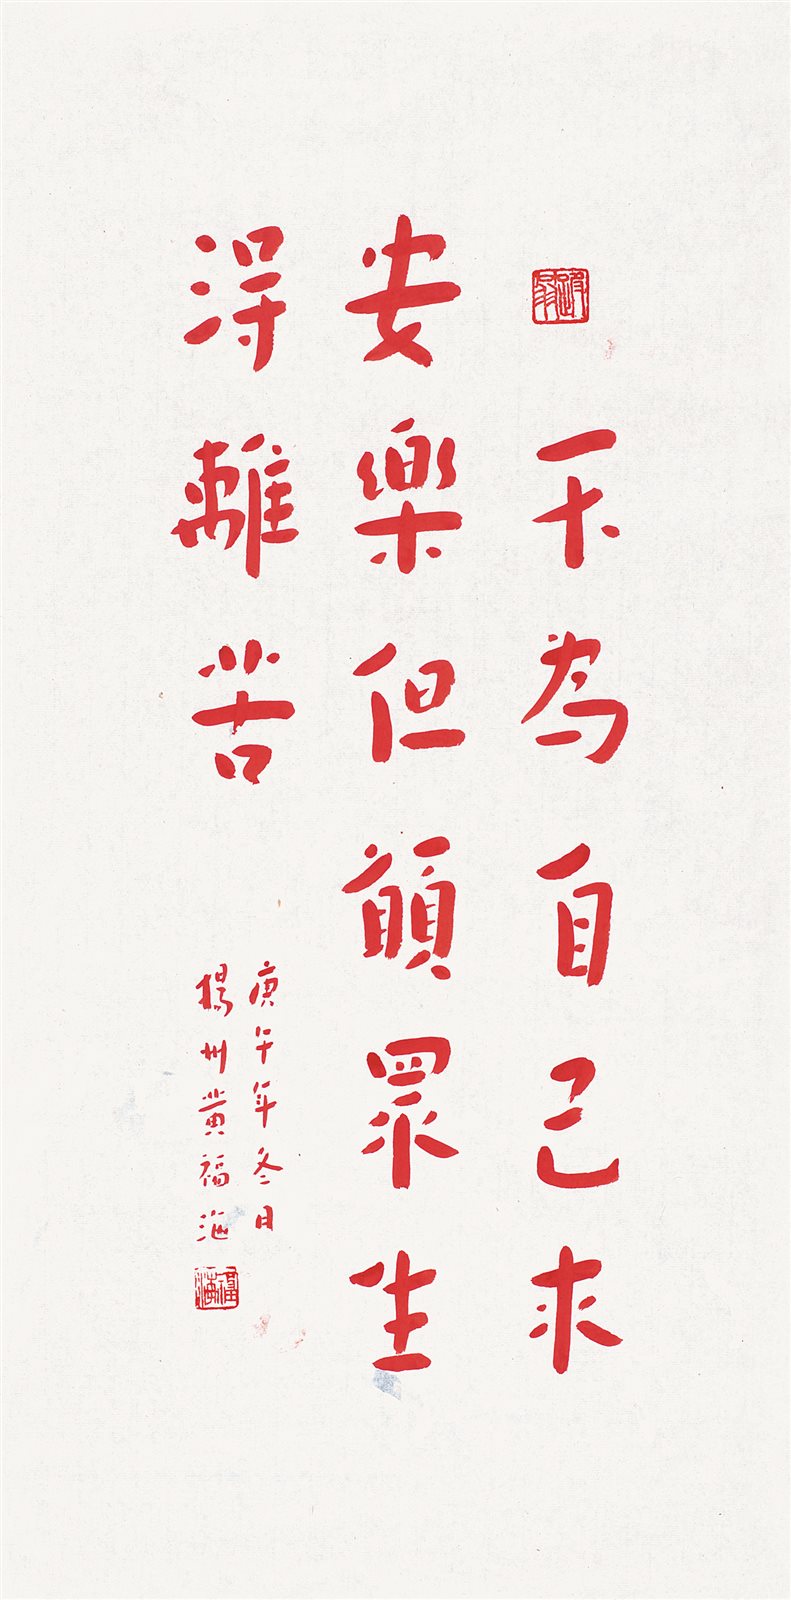 不為自己求
安樂但願眾生
得離苦
庚午年冬日
揚州黃福海
福海